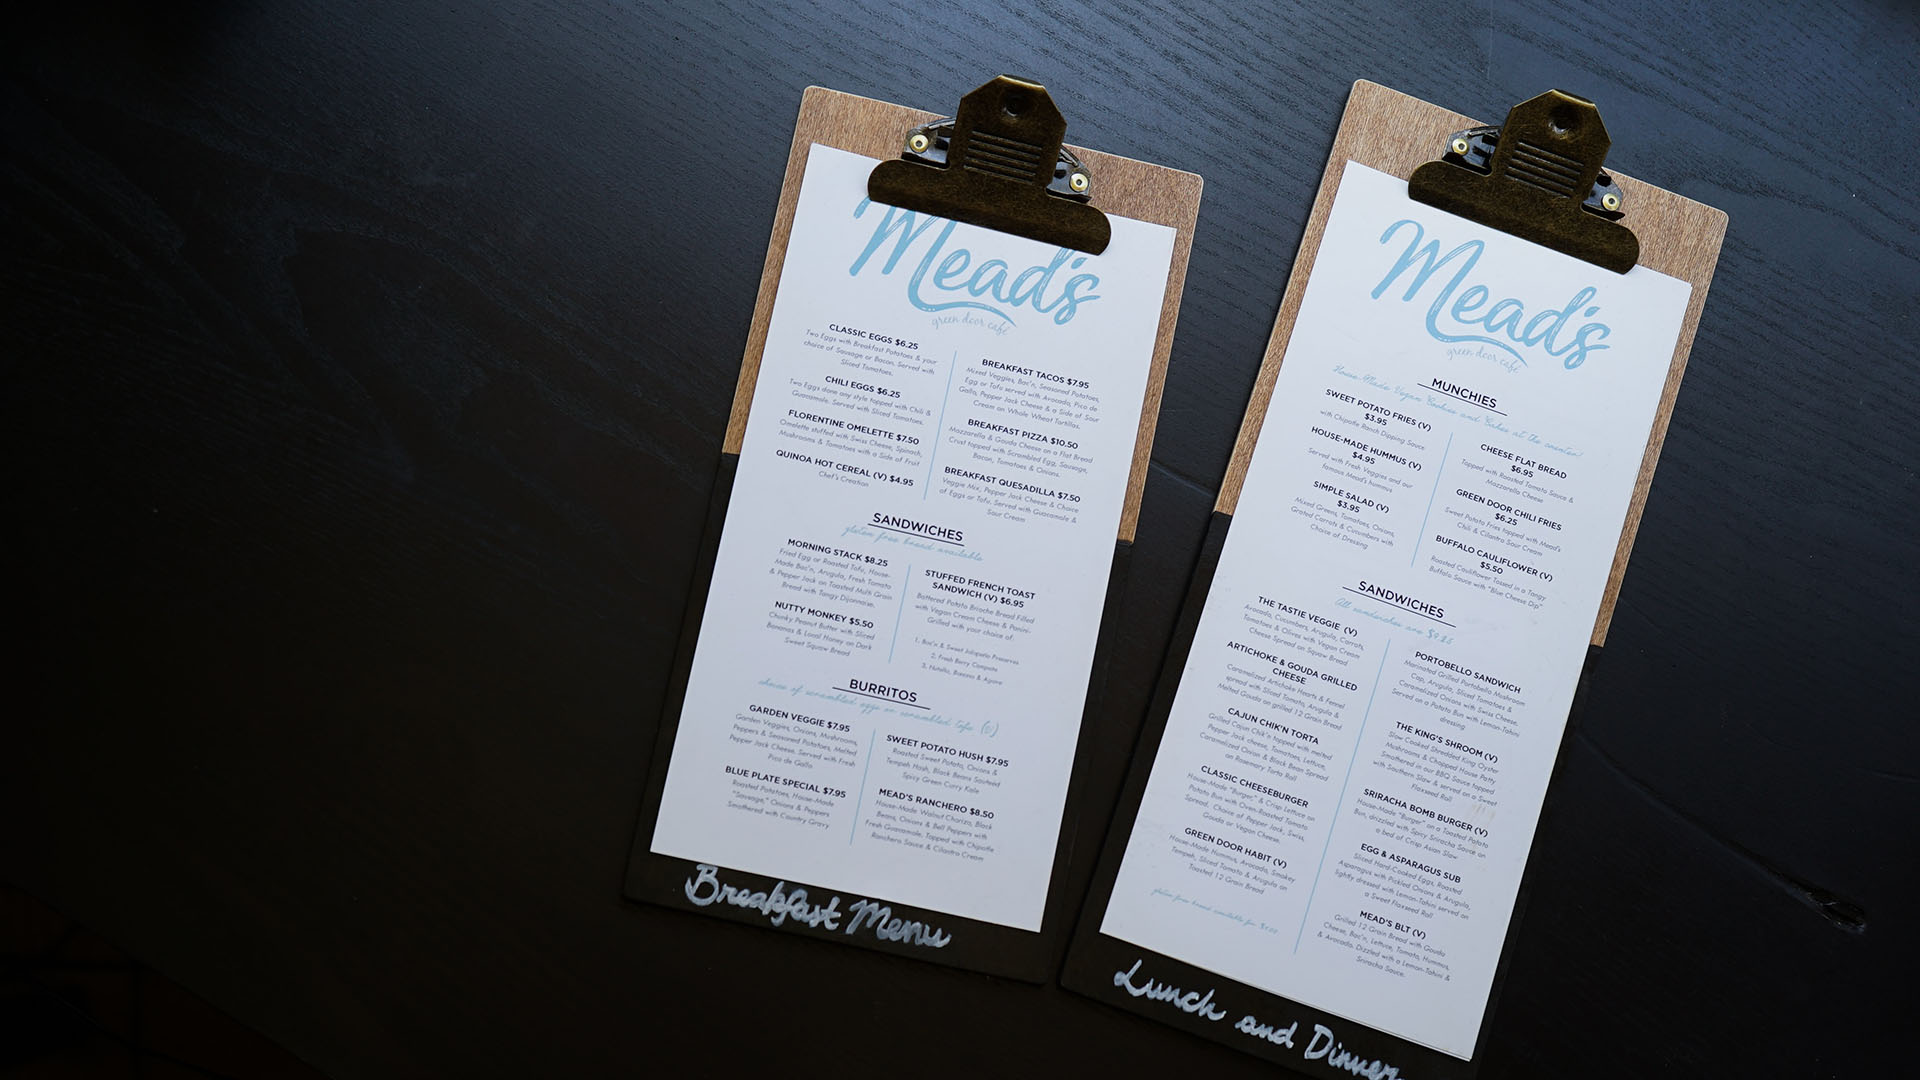 Mead's
green door café
CLASSIC EGGS $6.25
Two Eggs with Breakfast Potatoes & your
choice of Sausage or Bacon. Served with
Sliced Tomatoes.
CHILI EGGS $6.25
Two Eggs done any style topped with Chili &
Guacamole. Served with Sliced Tomatoes.
FLORENTINE OMELETTE $7.50
Omelette stuffed with Swiss Cheese, Spinach,
Mushrooms & Tomatoes with a Side of Fruit
QUINOA HOT CEREAL (V) $4.95
Chef's Creation
BREAKFAST TACOS $7.95
Mixed Veggies, Bac'n, Seasoned Potatoes,
Egg or Tofu served with Avocado, Pico de
Gallo, Pepper Jack Cheese & a Side of Sour
Cream on Whole Wheat Tortillas.
BREAKFAST PIZZA $10.50
Mozzarella & Gouda Cheese on a Flat Bread
Crust topped with Scrambled Egg, Sausage,
Bacon, Tomatoes & Onions.
BREAKFAST QUESADILLA $7.50
Veggie Mix, Pepper Jack Cheese & Choice
of Eggs or Tofu. Served with Guacamole &
Sour Cream
SANDWICHES
gluten free bread available
MORNING STACK $8.25
Fried Egg or Roasted Tofu, House-
Made Bac'n, Arugula, Fresh Tomato
& Pepper Jack on Toasted Multi Grain
Bread with Tangy Dijonnaise.
NUTTY MONKEY $5.50
Chunky Peanut Butter with Sliced
Bananas & Local Honey on Dark
Sweet Squaw Bread
STUFFED FRENCH TOAST
SANDWICH (V) $6.95
Battered Potato Brioche Bread Filled
with Vegan Cream Cheese & Panini-
Grilled with your choice of:
1. Bac'n & Sweet Jalapeño Preserves
2. Fresh Berry Compote
3. Nutella, Banana & Agave
BURRITOS
choice of scrambled eggs or scrambled tofu (v)
GARDEN VEGGIE $7.95
Garden Veggies, Onions, Mushrooms,
Peppers & Seasoned Potatoes, Melted
Pepper Jack Cheese. Served with Fresh
Pico de Gallo
BLUE PLATE SPECIAL $7.95
Roasted Potatoes, House-Made
"Sausage," Onions & Peppers
Smothered with Country Gravy
SWEET POTATO HUSH $7.95
Roasted Sweet Potato, Onions &
Tempeh Hash, Black Beans Sautéed
Spicy Green Curry Kale
MEAD'S RANCHERO $8.50
House-Made Walnut Chorizo, Black
Beans, Onions & Bell Peppers with
Fresh Guacamole, Topped with Chipotle
Ranchero Sauce & Cilantro Cream
Breakfast Menu
Mead's
green door café
MUNCHIES
House Made Vegan Cookies and Cakes at the counter!
SWEET POTATO FRIES (V)
$3.95
with Chipotle Ranch Dipping Sauce
HOUSE-MADE HUMMUS (V)
$4.95
Served with Fresh Veggies and our
famous Mead's hummus
SIMPLE SALAD (V)
$3.95
Mixed Greens, Tomatoes, Onions,
Grated Carrots & Cucumbers with
Choice of Dressing
CHEESE FLAT BREAD
$6.95
Topped with Roasted Tomato Sauce &
Mozzarella Cheese
GREEN DOOR CHILI FRIES
$6.25
Sweet Potato Fries topped with Mead's
Chili & Cilantro Sour Cream
BUFFALO CAULIFLOWER (V)
$5.50
Roasted Cauliflower Tossed in a Tangy
Buffalo Sauce with "Blue Cheese Dip"
SANDWICHES
All sandwiches are $9.25
THE TASTIE VEGGIE (V)
Avocado, Cucumbers, Arugula, Carrots,
Tomatoes & Olives with Vegan Cream
Cheese Spread on Squaw Bread
ARTICHOKE & GOUDA GRILLED
CHEESE
Caramelized Artichoke Hearts & Fennel
spread with Sliced Tomato, Arugula &
Melted Gouda on grilled 12 Grain Bread
CAJUN CHIK'N TORTA
Grilled Cajun Chik'n topped with melted
Pepper Jack cheese, Tomatoes, Lettuce,
Caramelized Onion & Black Bean Spread
on Rosemary Torta Roll
CLASSIC CHEESEBURGER
House-Made "Burger," & Crisp Lettuce on
Potato Bun with Oven-Roasted Tomato
Spread, Choice of Pepper Jack, Swiss,
Gouda or Vegan Cheese.
GREEN DOOR HABIT (V)
House-Made Hummus, Avocado, Smokey
Tempeh, Sliced Tomato & Arugula on
Toasted 12 Grain Bread
gluten free bread available for
PORTOBELLO SANDWICH
Marinated Grilled Portobello Mushroom
Cap, Arugula, Sliced Tomatoes &
Caramelized Onions with Swiss Cheese,
Served on a Potato Bun with Lemon-Tahini
dressing
THE KING'S SHROOM (V)
Slow Cooked Shredded King Oyster
Mushrooms & Chopped House Patty
Smothered in our BBQ Sauce topped
with Southern Slaw & served on a Sweet
Flaxseed Roll
SRIRACHA BOMB BURGER (V)
House-Made "Burger" on a Toasted Potato
Bun, drizzled with Spicy Sriracha Sauce on
a bed of Crisp Asian Slaw
EGG & ASPARAGUS SUB
Sliced Hard-Cooked Eggs, Roasted
Asparagus with Pickled Onions & Arugula,
lightly dressed with Lemon-Tahini served on
a Sweet Flaxseed Roll
MEAD'S BLT (V)
Grilled 12 Grain Bread with Gouda
Cheese, Bac'n, Lettuce, Tomato, Hummus,
& Avocado. Dizzled with a Lemon-Tahini &
Sriracha Sauce.
Lunch and Dinner